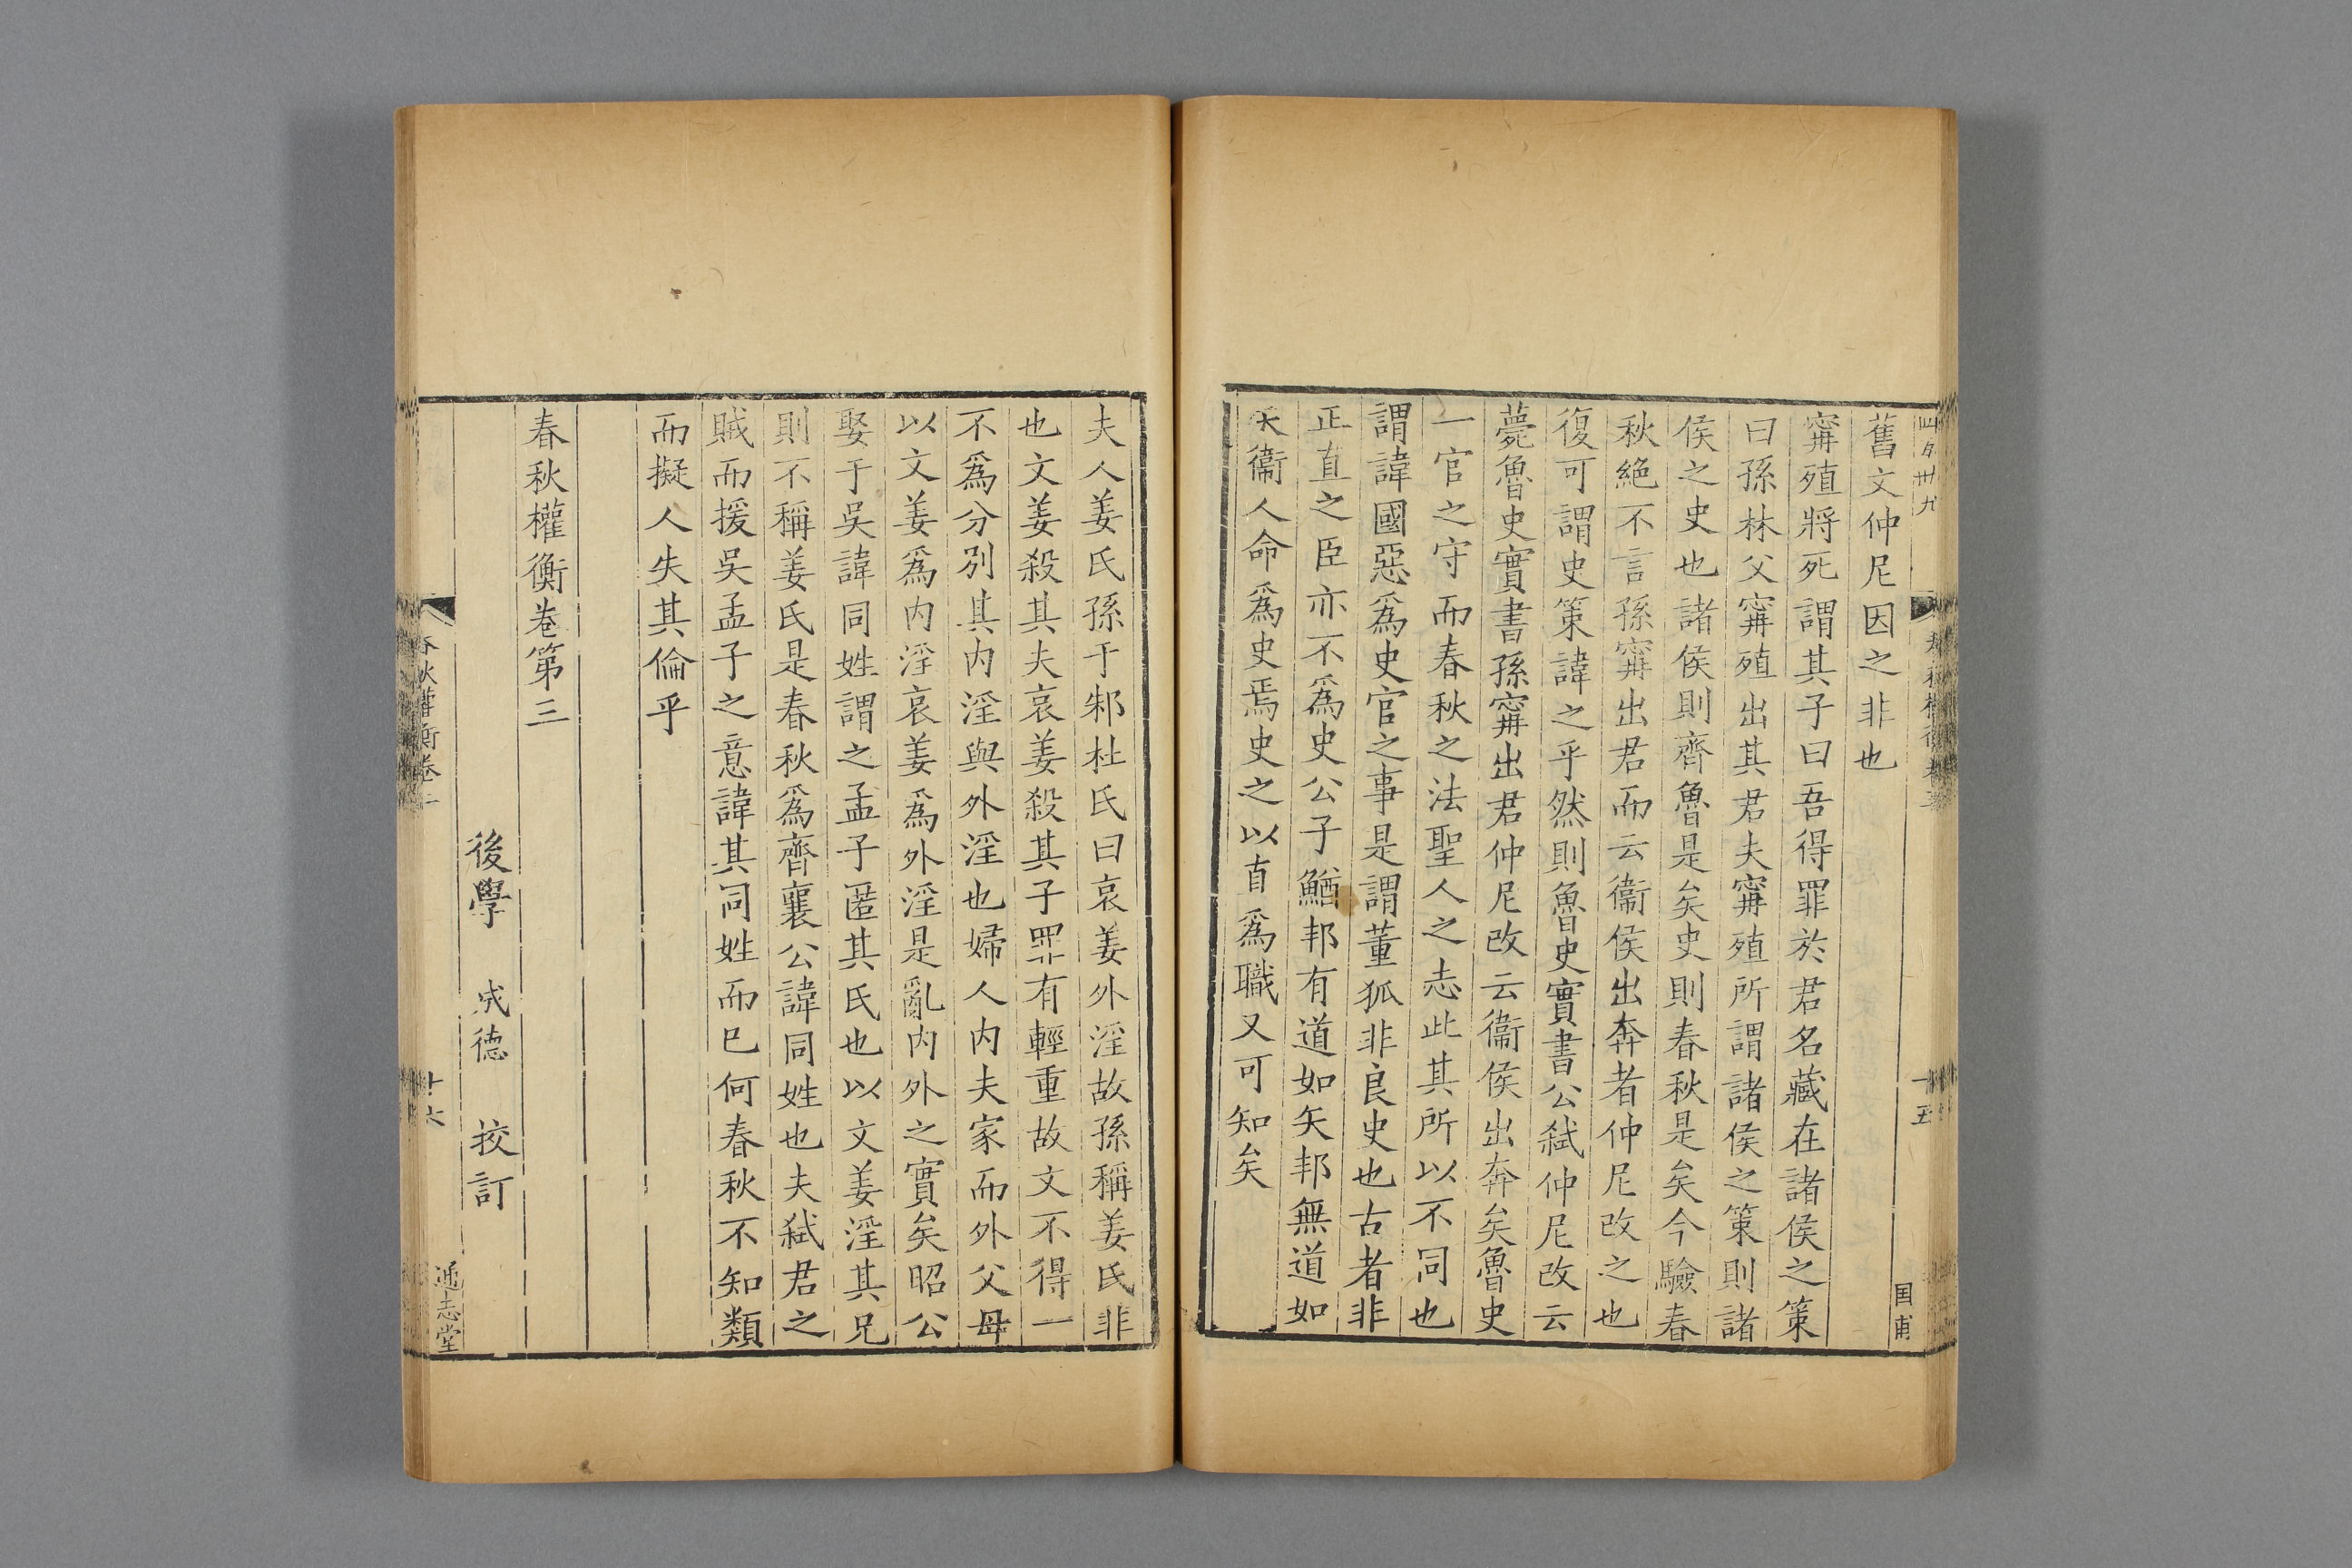 舊文仲尼因之非也
甯殖將死謂其子曰吾得罪於君名藏在諸侯之策
曰孫林父甯殖出其君夫甯殖所謂諸侯之策則諸
侯之史也諸侯則齊魯是矣史則春秋是矣今驗春
秋絕不言孫甯出君而云衞侯出奔者仲尼改之也
復可謂史策諱之乎然則魯史實書公弑仲尼改云
薨魯史實書孫甯出君仲尼改云衞侯出奔矣魯史
一官之守而春秋之法聖人之志此其所以不同也
謂諱國惡爲史官之事是謂董狐非良史也古者非
正直之臣亦不爲史公子鰌邦有道如矢邦無道如
矢衞人命爲史焉史之以直爲職又可知矣
十五
国甫
夫人姜氏孫于邾杜氏曰哀姜外淫故孫稱姜氏非
也文姜殺其夫哀姜殺其子罪有輕重故文不得一
不爲分別其内淫與外淫也婦人内夫家而外父母
以文姜爲内淫哀姜爲外淫是亂内外之實矣昭公
娶于吳諱同姓謂之孟子匿其氏也以文姜淫其兄
則不稱姜氏是春秋爲齊襄公諱同姓也夫弑君之
賊而援吳孟子之意諱其同姓而已何春秋不知類
而擬人失其倫乎
春秋權衡卷第三
後學 成德 挍訂
春秋權衡卷三
十六
通志堂